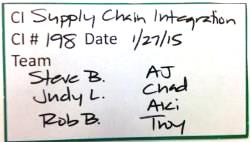 CI Supply Chain Integration
CI # 198 Date 1/27/15
Team
Steve B. AJ
Judy L. Chad
Rob B. Aki
Troy